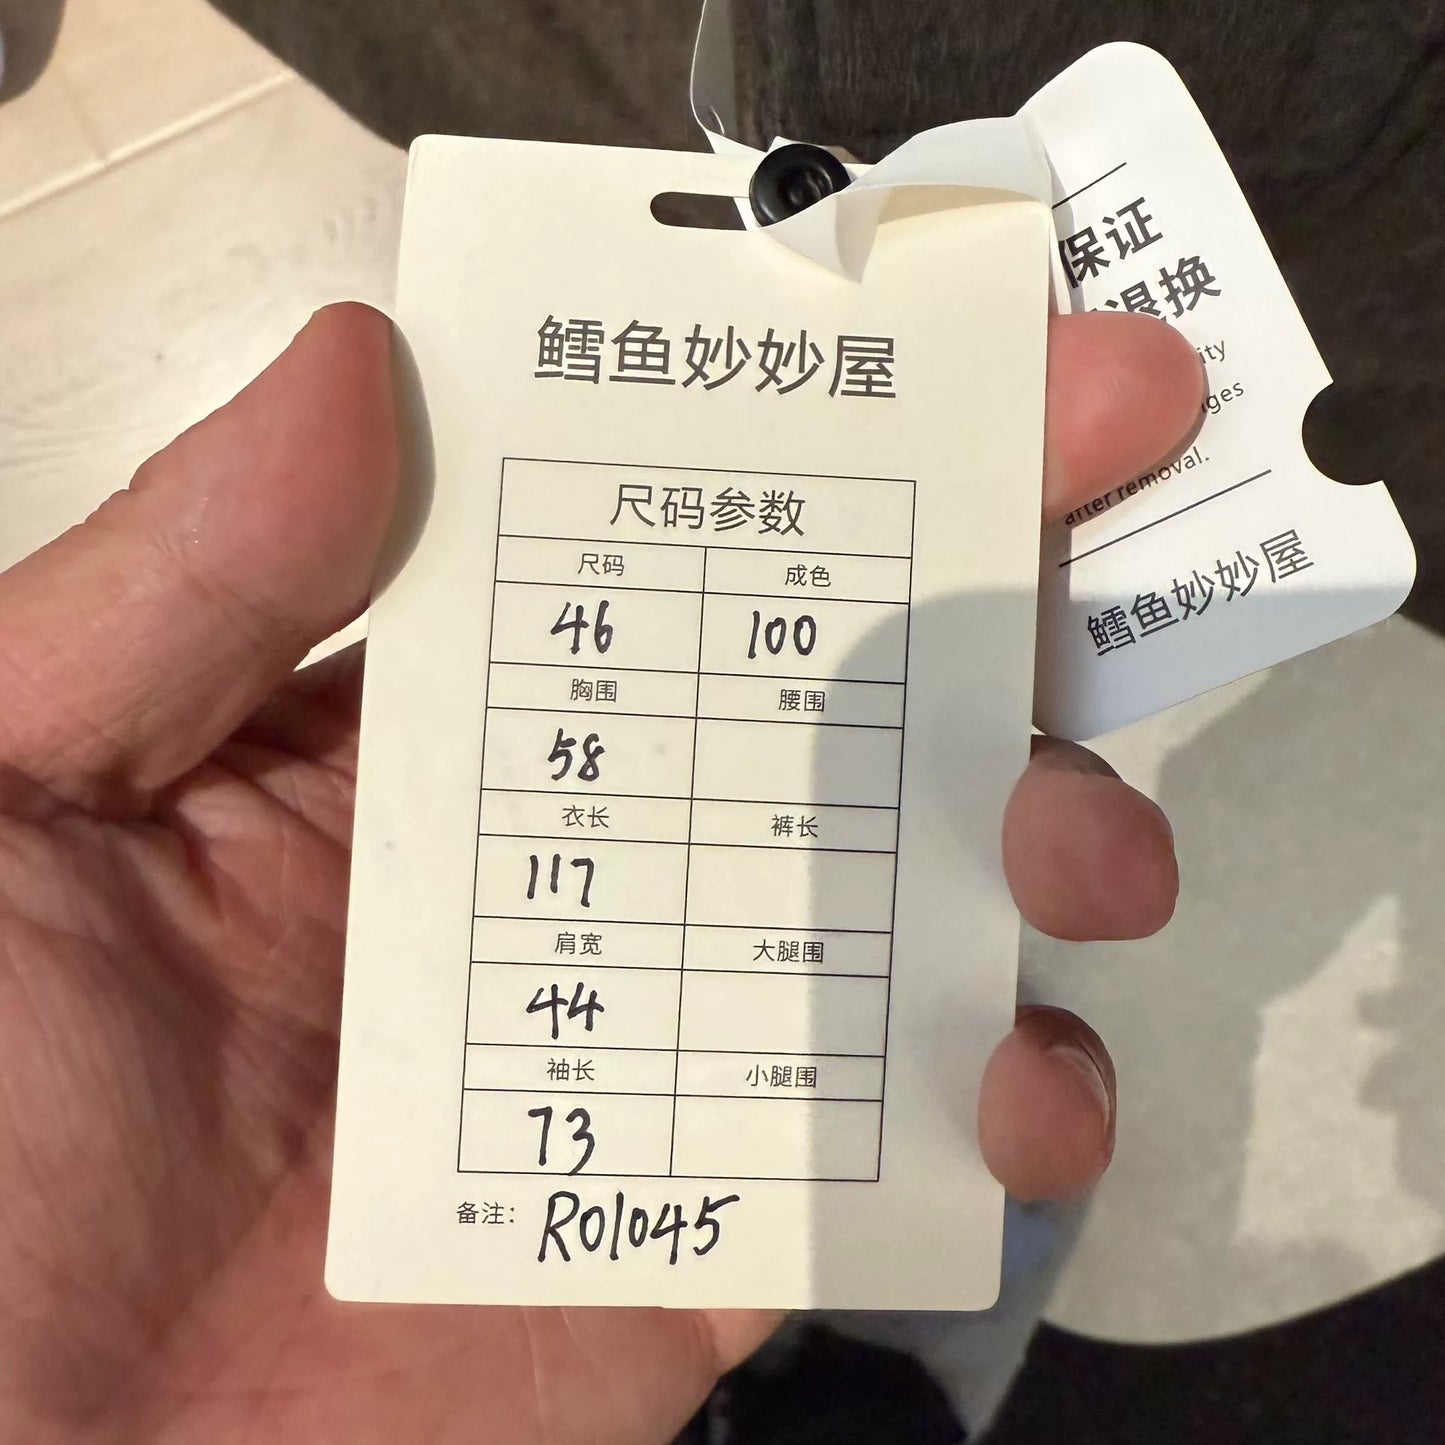 鳕鱼妙妙屋
尺码参数
尺码 成色
46 100
胸围 腰围
58
衣长 裤长
117
肩宽 大腿围
44
袖长 小腿围
73
备注: R01045
保证
退换
after removal.
鳕鱼妙妙屋